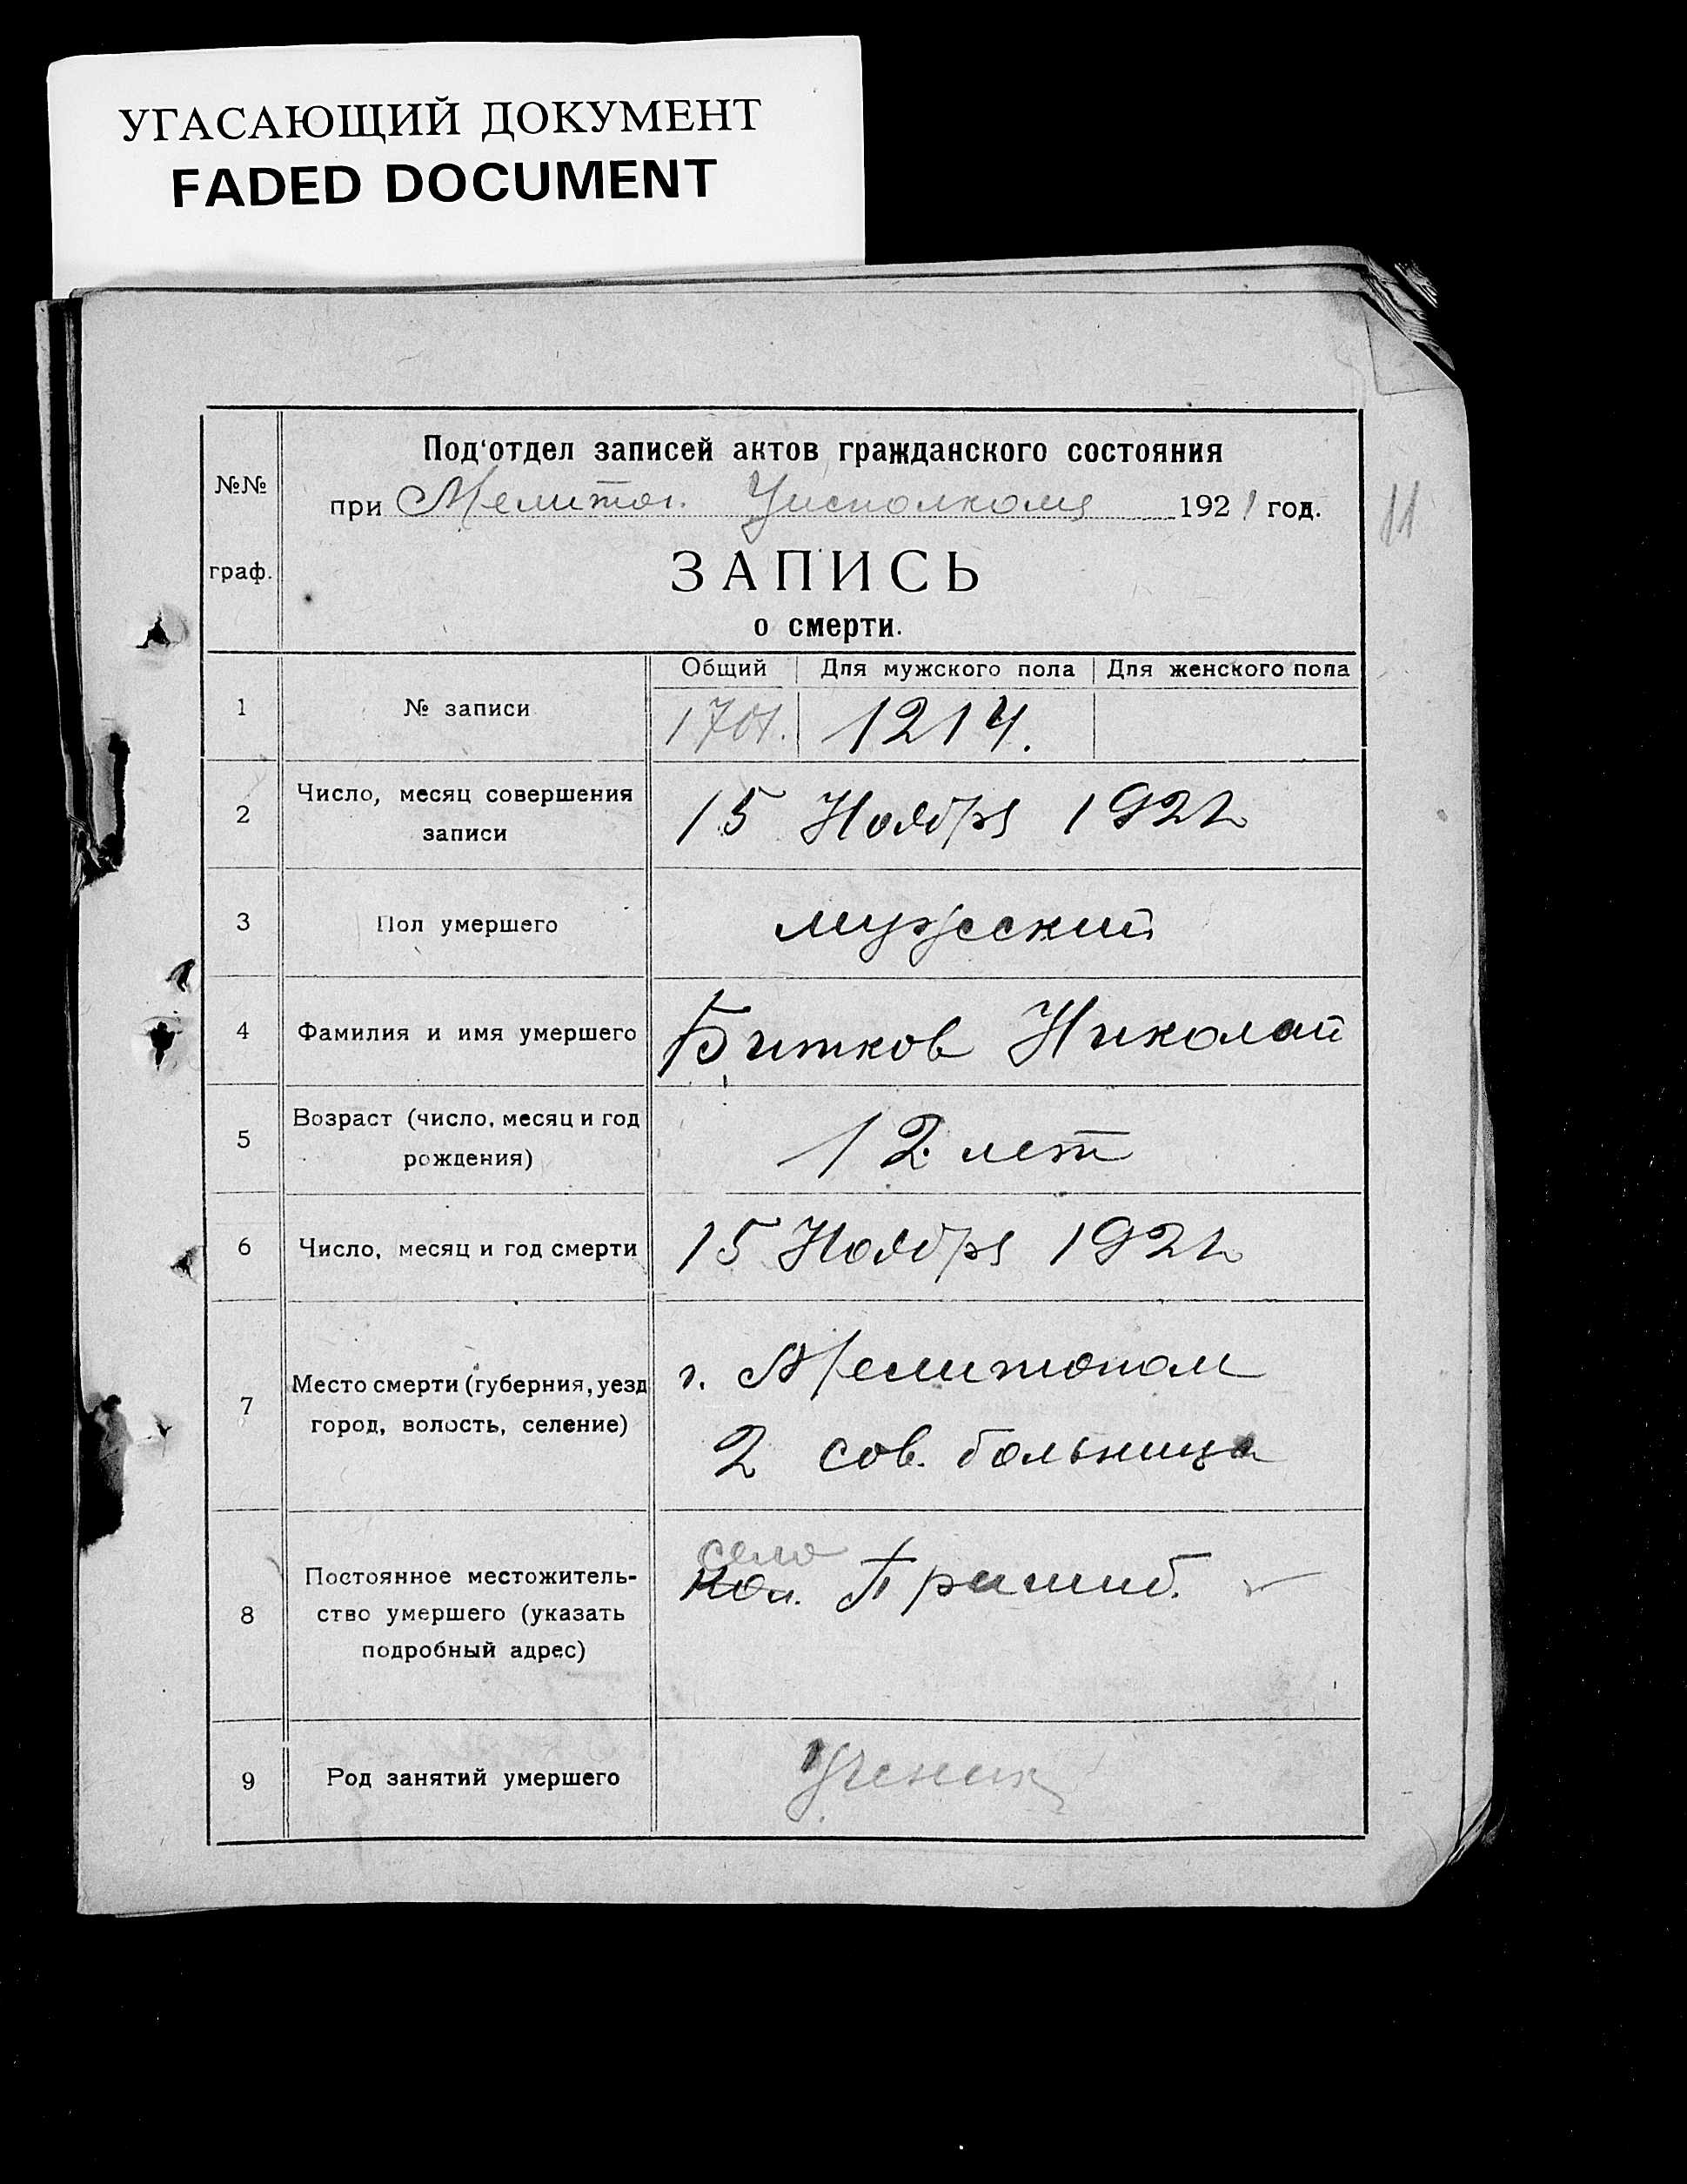 УГАСАЮЩИЙ ДОКУМЕНТ
FADED DOCUMENT
№№
граф.
Под'отдел записей актов гражданского состояния
при Мелитоп. Уисполкоме 1921 год.
11
ЗАПИСЬ
о смерти.
Общий Для мужского пола Для женского пола
1 № записи 1701. 1214.
2 Число, месяц совершения
записи
15 Ноября 192
3 Пол умершего мужеский
4 Фамилия и имя умершего Битков Николай
5 Возраст (число, месяц и год
рождения)
12 лет
6 Число, месяц и год смерти 15 Ноября 192
7 Место смерти (губерния, уезд
город, волость, селение)
г. Мелитопол
2 сов. больница
8 Постоянное местожитель-
ство умершего (указать
подробный адрес)
село
кол. Пришиб.
9 Род занятий умершего Ученик